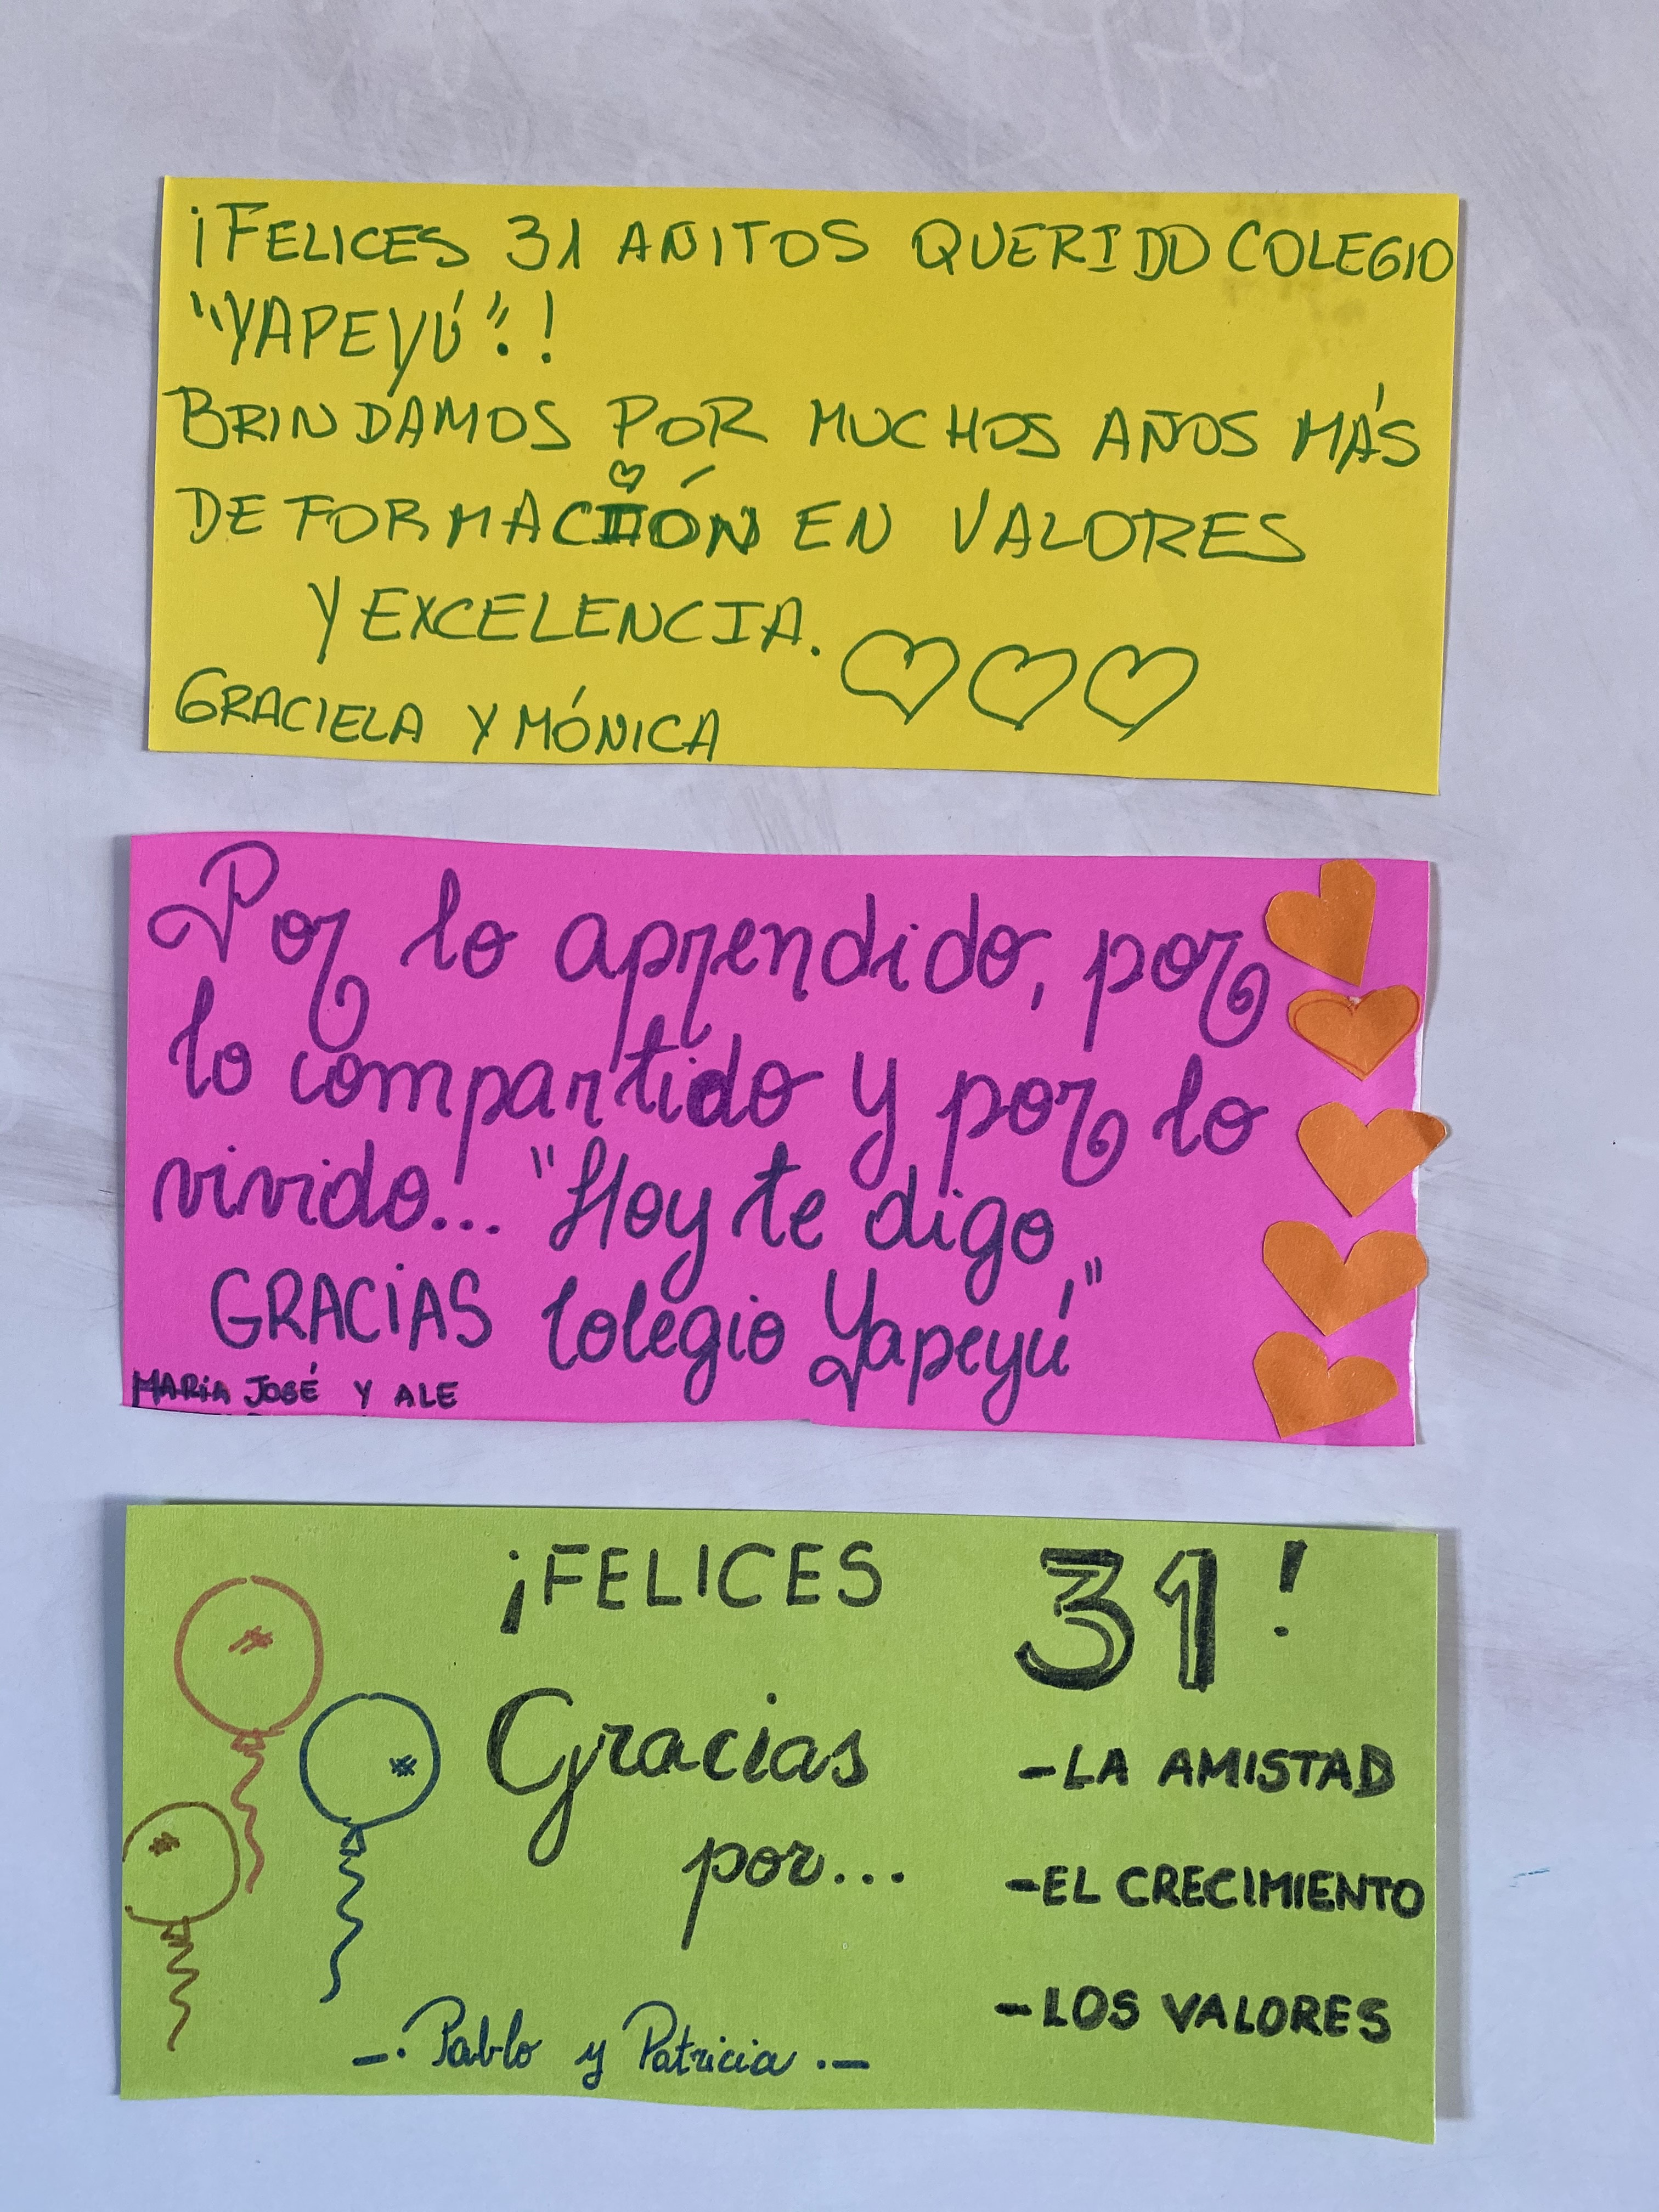 ¡FELICES 31 AÑITOS QUERIDO COLEGIO
"YAPEYÚ".!
BRINDAMOS POR MUCHOS AÑOS MÁS
DE FORMACIÓN EN VALORES
Y EXCELENCIA.
GRACIELA Y MÓNICA
Por lo aprendido, por
lo compartido y por lo
vivido... "Hoy te digo
GRACIAS Colegio Yapeyú"
MARÍA JOSÉ Y ALE
¡FELICES 31!
Gracias
por...
-LA AMISTAD
-EL CRECIMIENTO
-LOS VALORES
-. Pablo y Patricia .-